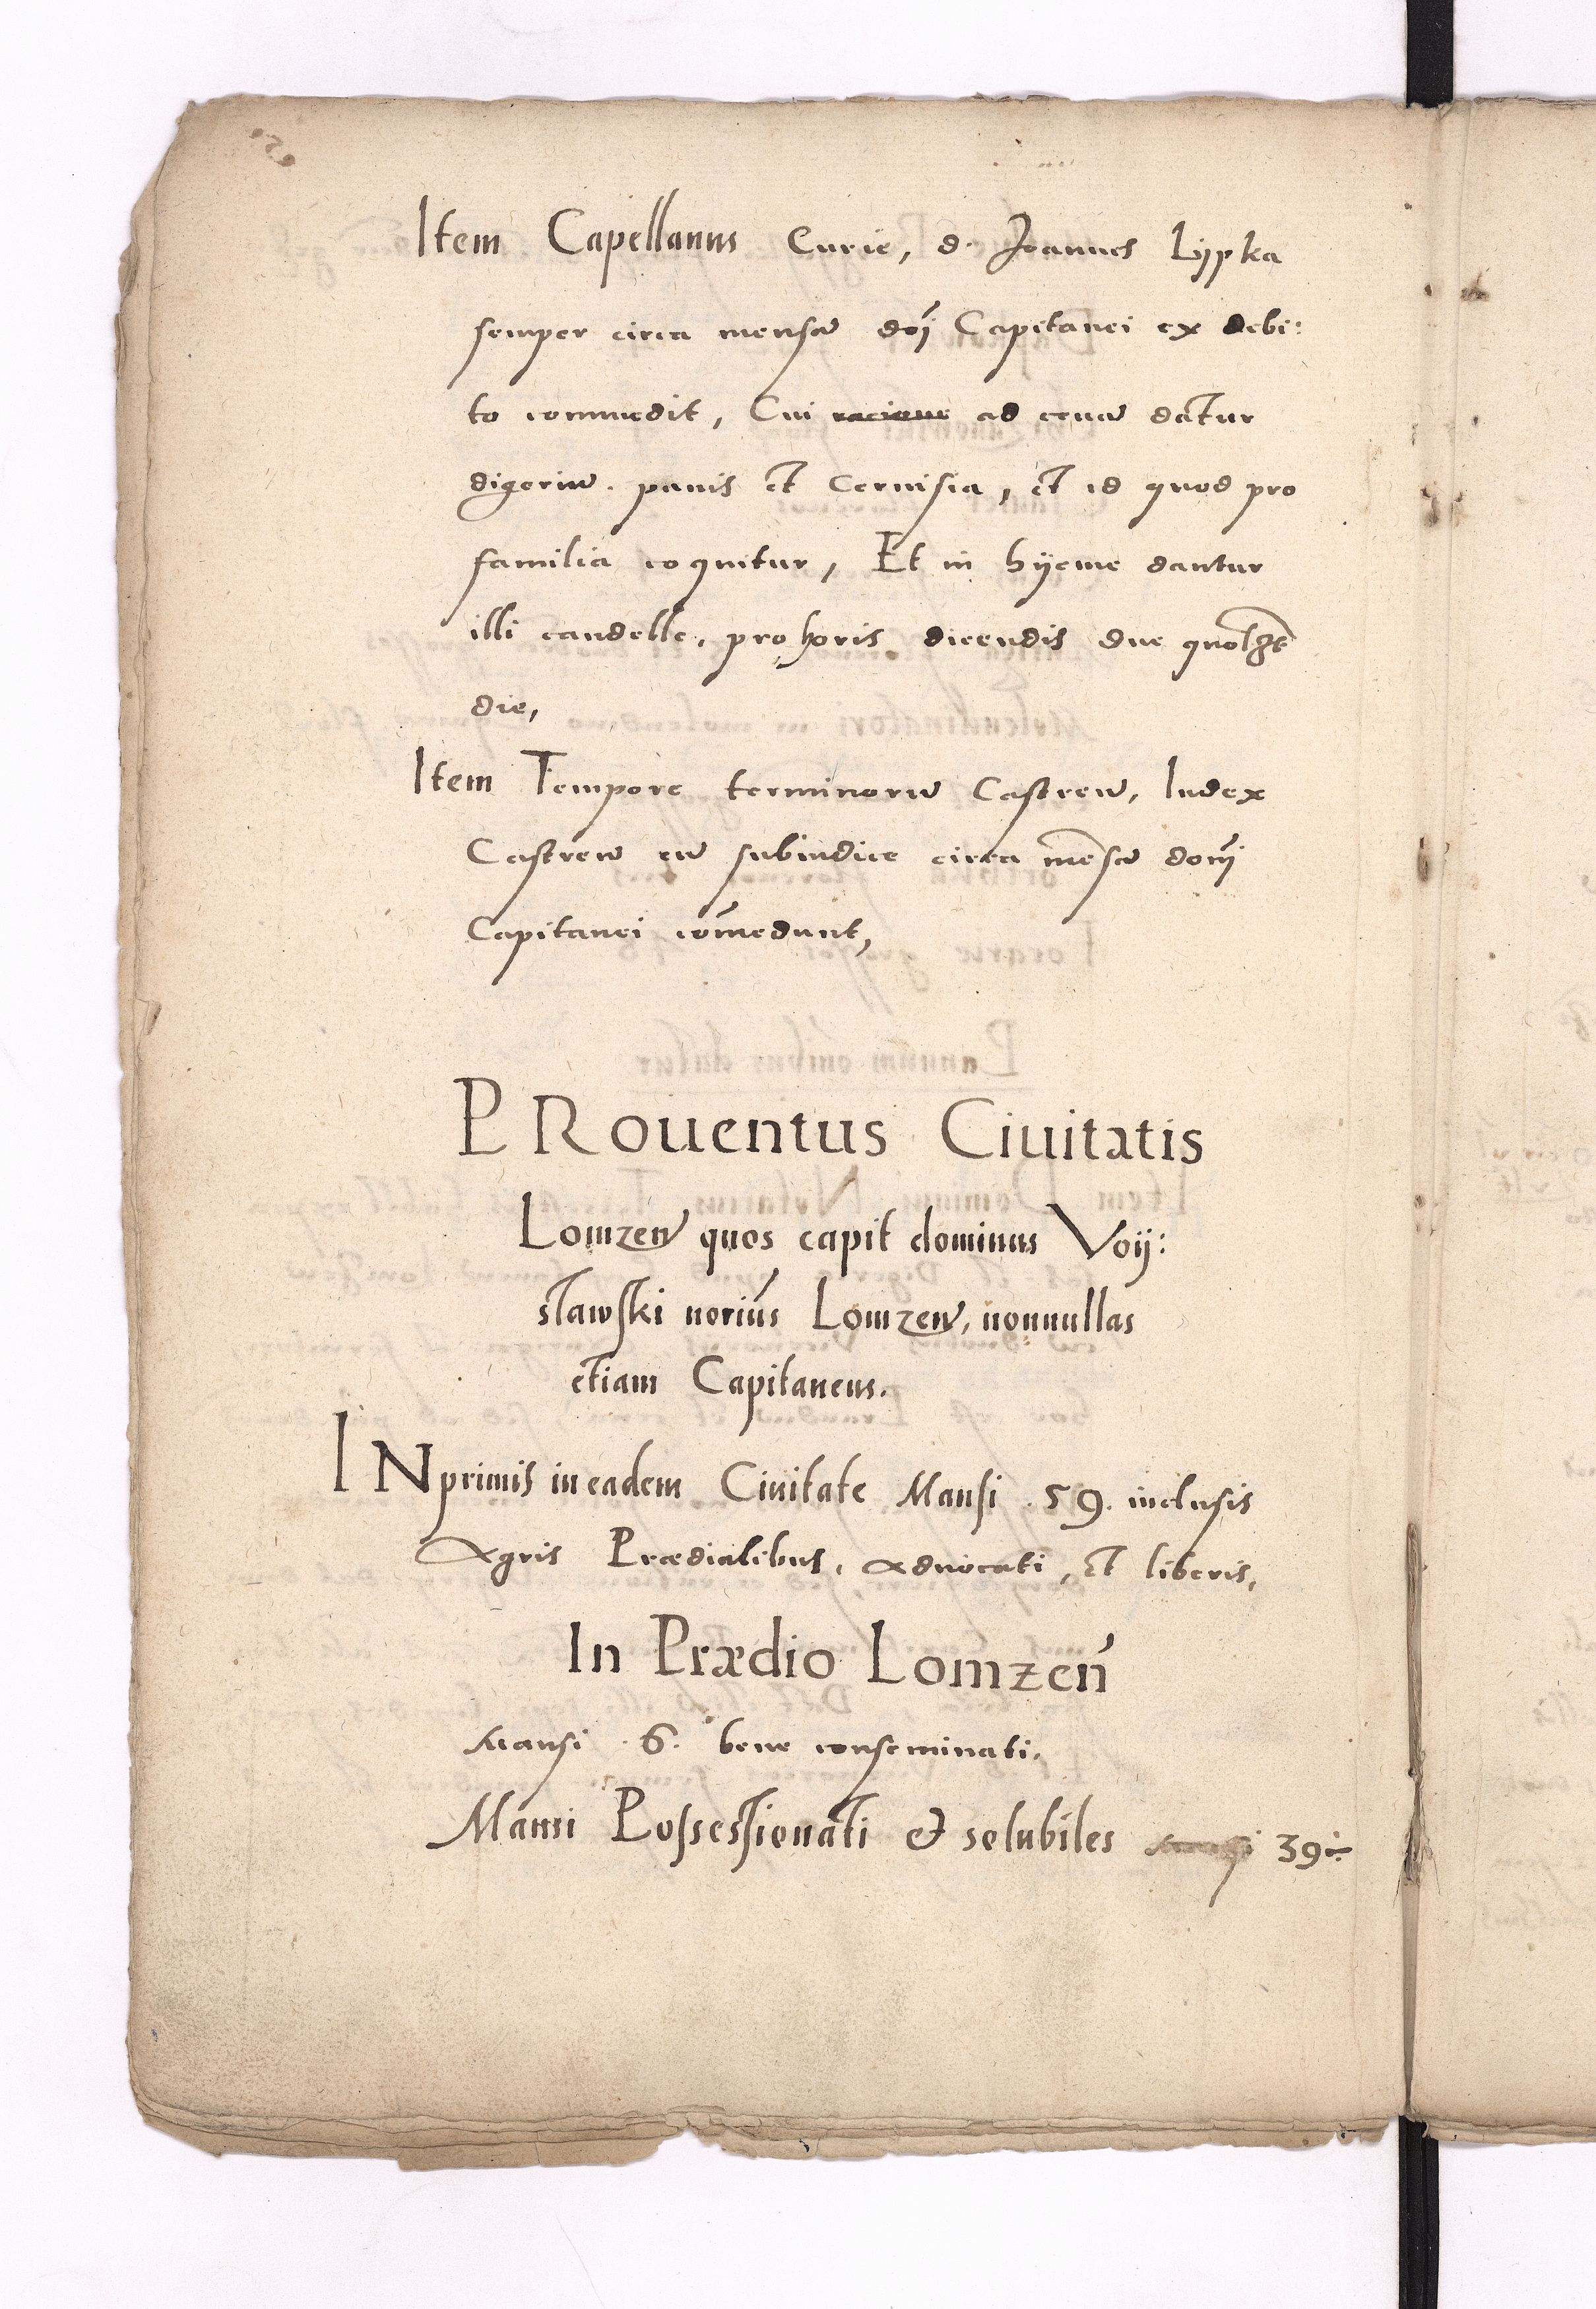 Item Capellanus Curie, d. Joannes Lypka
semper circa mensā dōi Capitanei ex debi:
to commedit, Cui racione ad cenā datur
digeriū. panis et Cervisia, et id quod pro
familia coquitur, Et in hyeme dantur
illi candelle, pro horis dicendis due quolzt
die,
Item Tempore terminorū Castreñ, Iudex
Castreñ cū subiudice circa mēsā domī
Capitanei cōmedunt,
PRouentus Ciuitatis
Lomzeñ quos capit dominus Voy:
slawski noriūs Lomzeñ, nonnullas
etiam Capitaneus.
INprimis in eadem Ciuitate Mansi .59. inclusis
Agris Prædialibus, Aduocati, et liberis,
In Prædio Lomzeñ
Mansi .6. bene conseminati.
Mansi Possessionati & solubiles 39